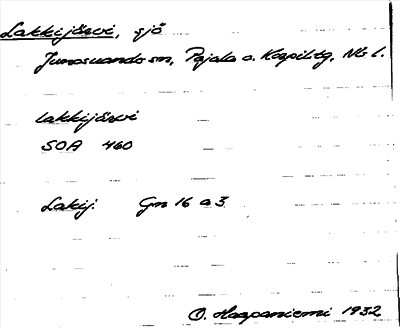 Lakkijärvi, sjö
Junosuando sn, Pajala o. Korpil. tg, Nb l.
lakkijärvi
SOA 460
Lakij. Gn 16 a 3
O. Haapaniemi 1932